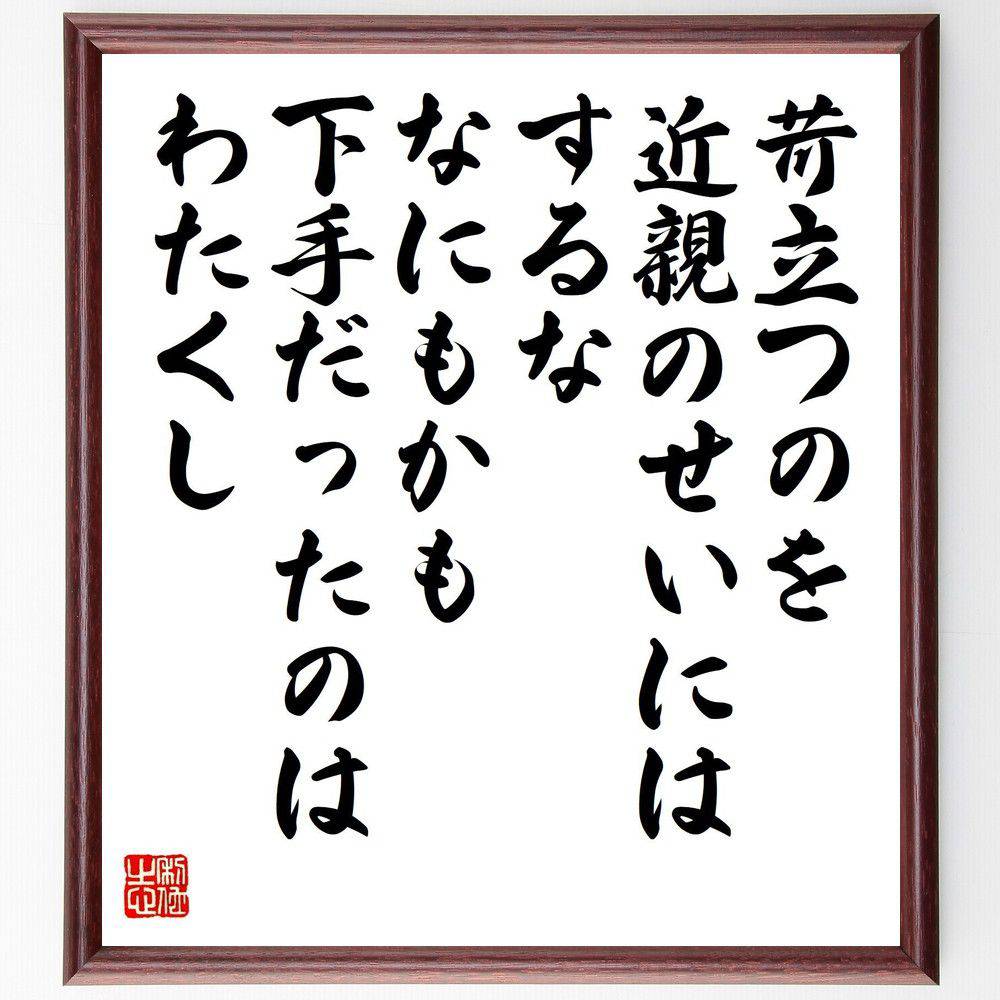 苛立つのを
近親のせいには
するな
なにもかも
下手だったのは
わたくし